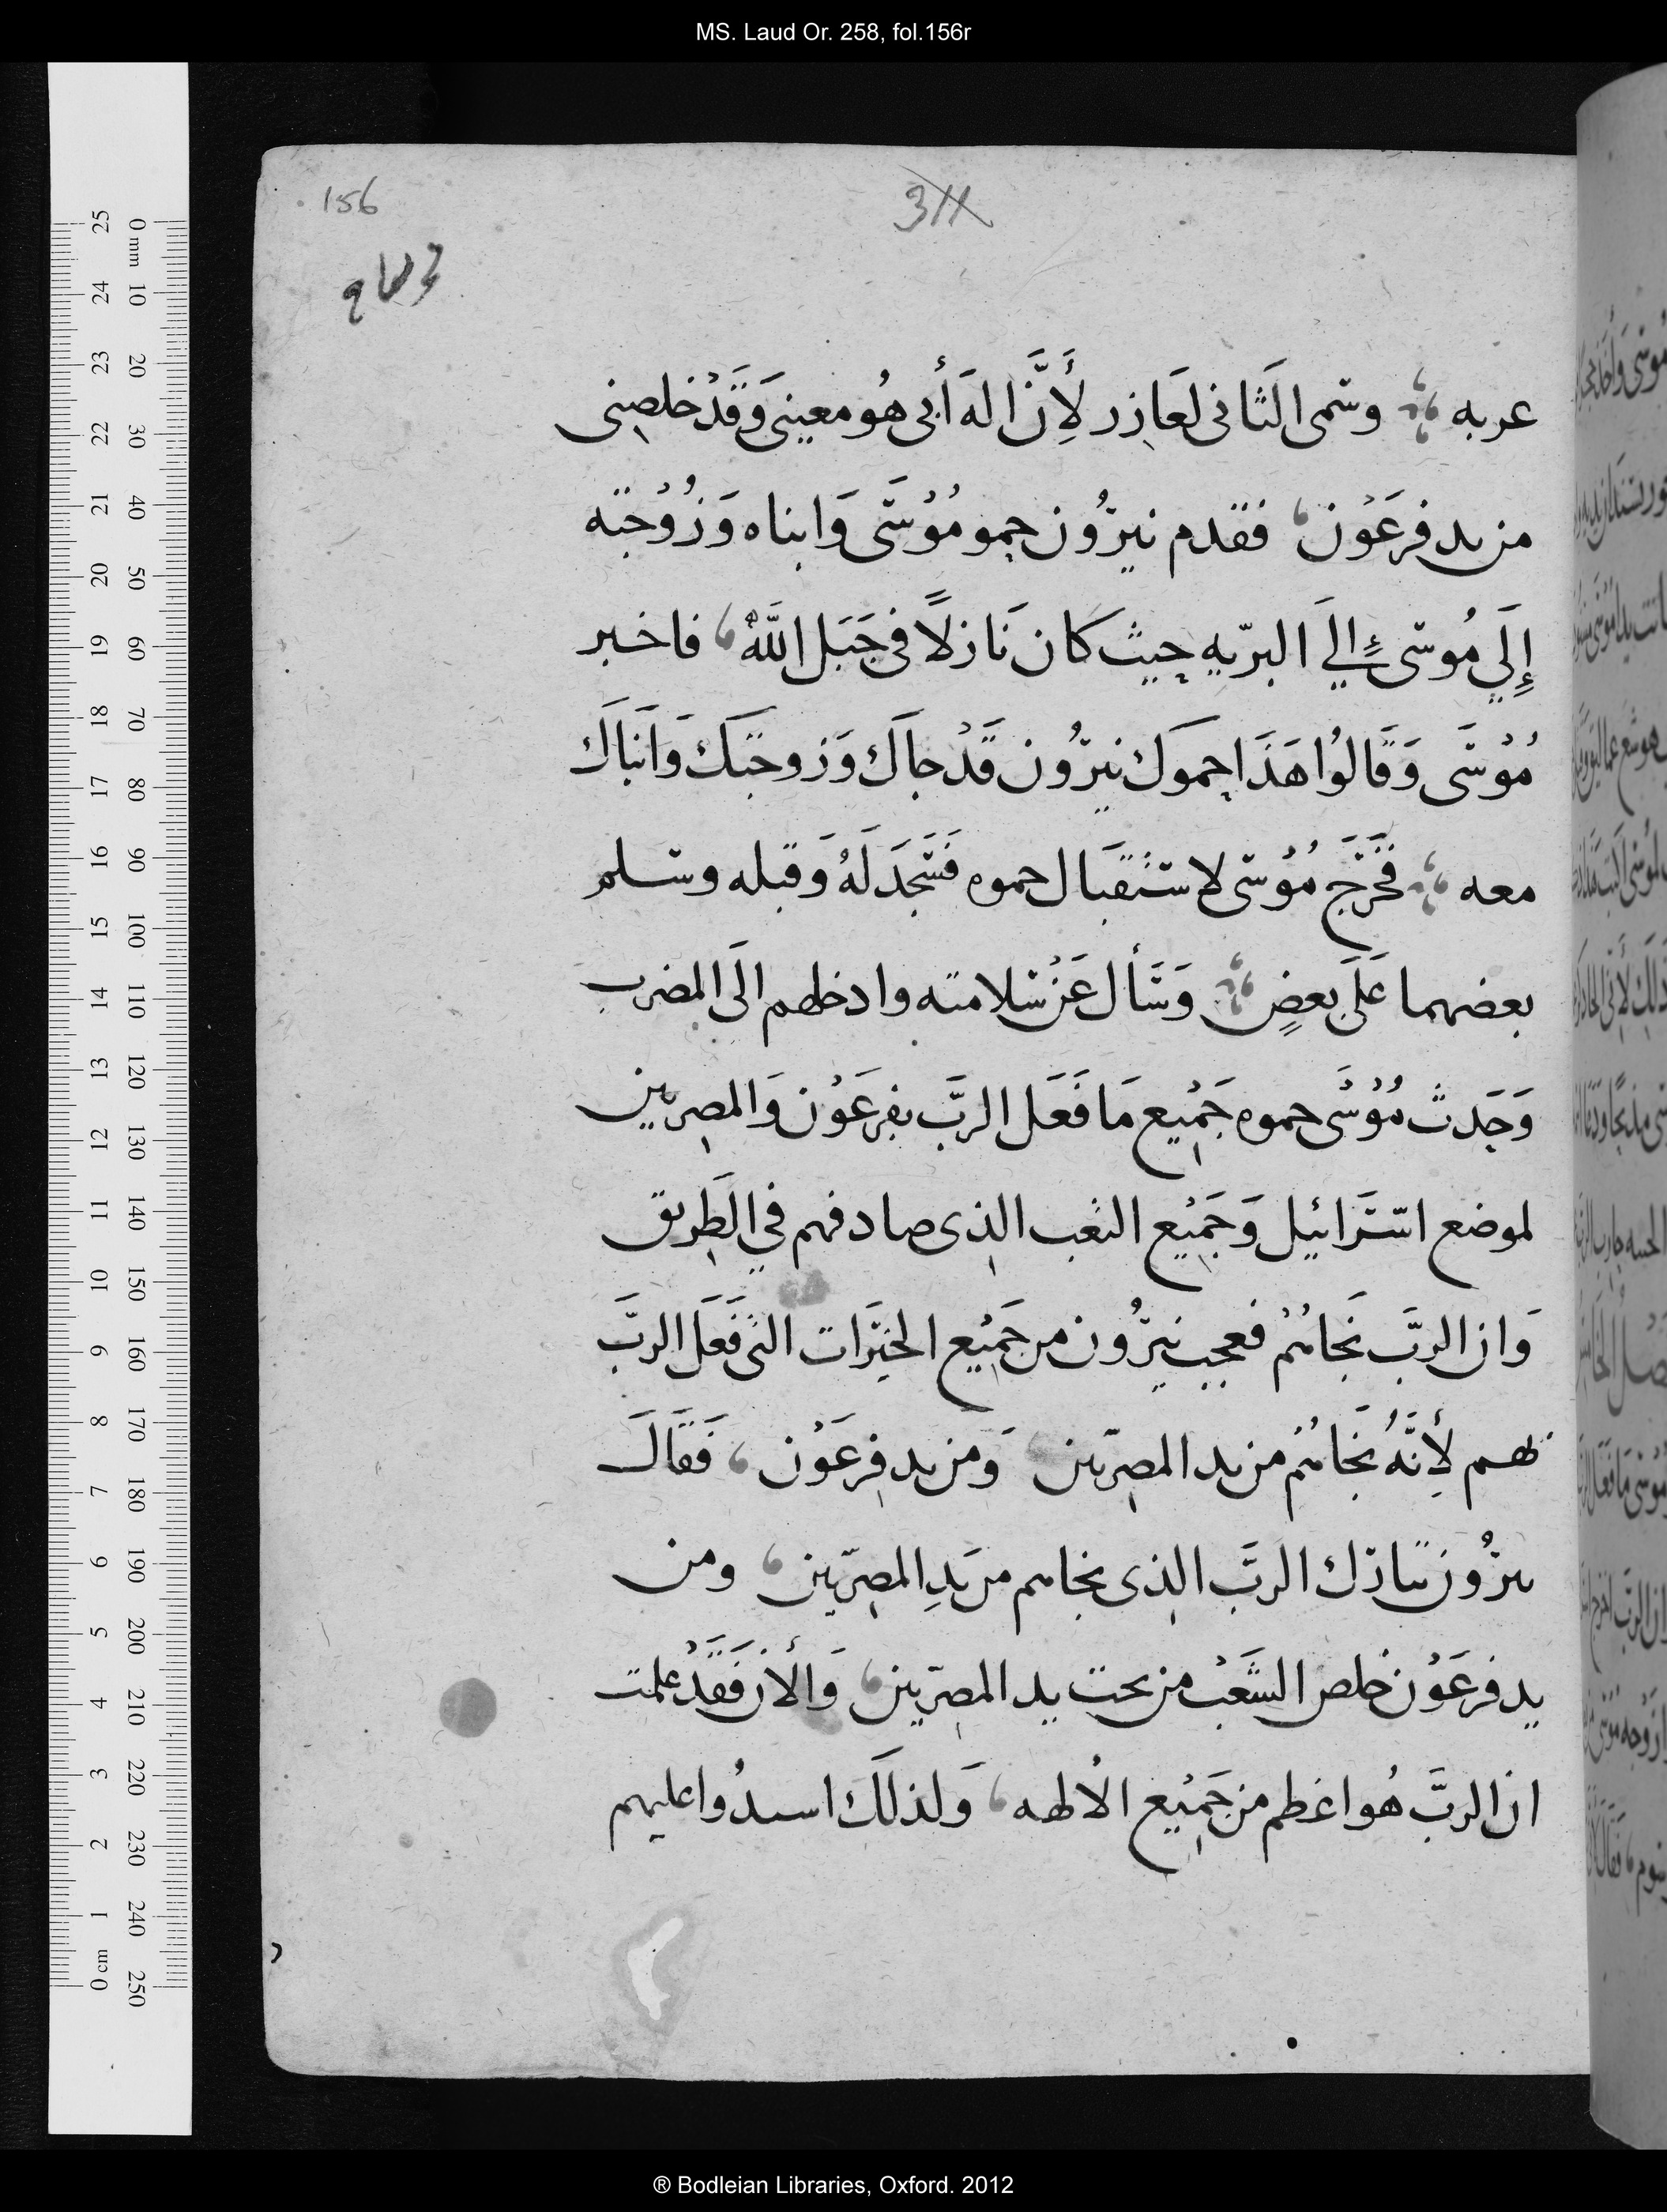 MS. Laud Or. 258, fol.156r
156
311
عربه وسمى الثانى لعازر لأَِنَّ اله أبى هُو معينى وَقَدْ خلصنى
من يد فرعَوْن فقدم يثرُون حمو مُوْسَى وَابناه وَزَوْجته
إِلَي مُوسىٰ إلي البرّيه حيث كان نَازلاً فى جَبَل اللَّهْ فاخبر
مُوْسَى وَقَالوُا هَذَا حموك يثرُون قَدْ جاَك وَزوجتك وَابناَك
معه فَخَرَجَ مُوْسى لاستْقبَال حموه فَسَجَدَ لَهُ وَقبله وسلم
بعضهما عَلَى بعضٍ وَسَأل عَنْ سلامته وادخلهم الَى المضرب
وَحَدث مُوْسَى حموه جَمْيع مَا فَعَل الربَّ بفرعَوْن وَالمصريين
لموضع اسَرائيل وَجَمْيع التعب الذى صادفهم في الَطريق
وَان الربَّ نَجاهُم فعجب يثرُون من جَمْيع الخيَرات التى فَعَل الربَّ
لهم لأِنَّهُ نَجاهُم من يد المصرّيين وَمن يد فرعَوْن فَقَالَ
يثرُون تبَارك الربَّ الذى نجاهم من يَدِ المصرّيين ومن
يد فرعَوْن خلص الشَعْب من تحت يد المصرّيين وَالأن فَقَدْ علمت
ان الربَّ هُو اعظم من جَمْيع الألهه وَلذلَك اسدُوا عليهم
® Bodleian Libraries, Oxford. 2012